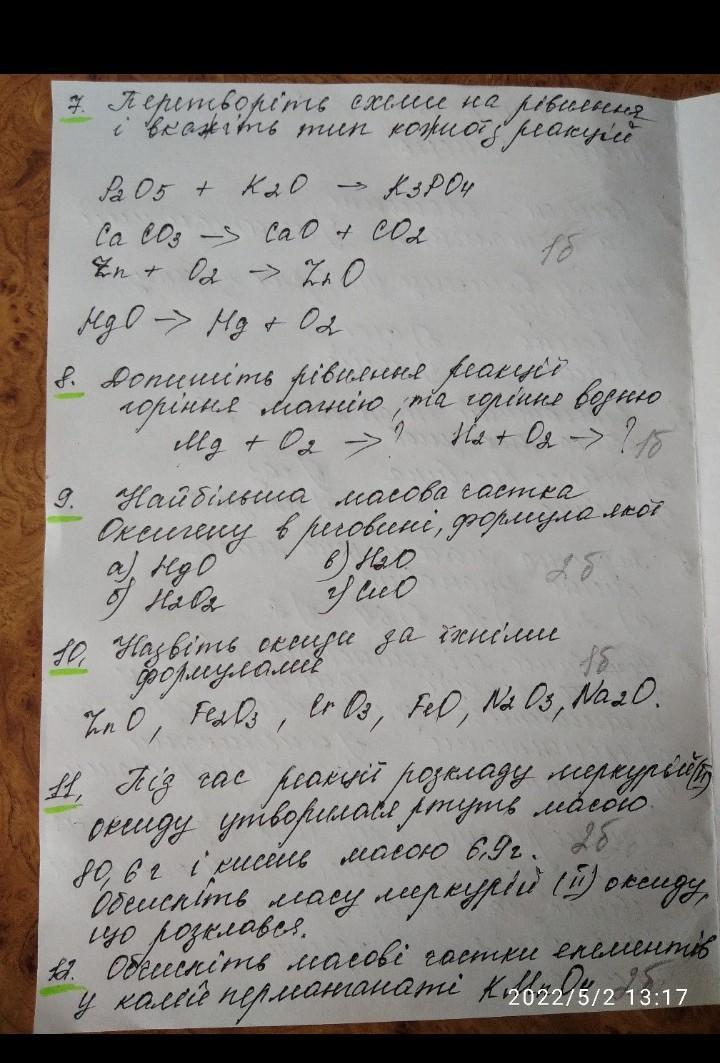 7. Перетворіть схеми на рівняння
і вкажіть тип кожної з реакцій
P2O5 + K2O → K3PO4
CaCO3 → CaO + CO2
1б
Zn + O2 → ZnO
HgO → Hg + O2
8. Допишіть рівняння реакції
горіння магнію, та горіння водню
Mg + O2 → ? H2 + O2 → ? 1б
9. Найбільша масова частка
Оксигену в речовині, формула якої
а) HgO в) H2O
2б
б) H2O2 г) CuO
10. Назвіть оксиди за їхніми
формулами
1б
ZnO, Fe2O3, CrO3, FeO, N2O3, Na2O.
11. Під час реакції розкладу меркурій (II)
оксиду утворилася ртуть масою
80,6 г і кисень масою 6,9 г. 2б
Обчисліть масу меркурій (II) оксиду,
що розклався.
12. Обчисліть масові частки елементів
у калій перманганаті KMnO4 2б
2022/5/2 13:17